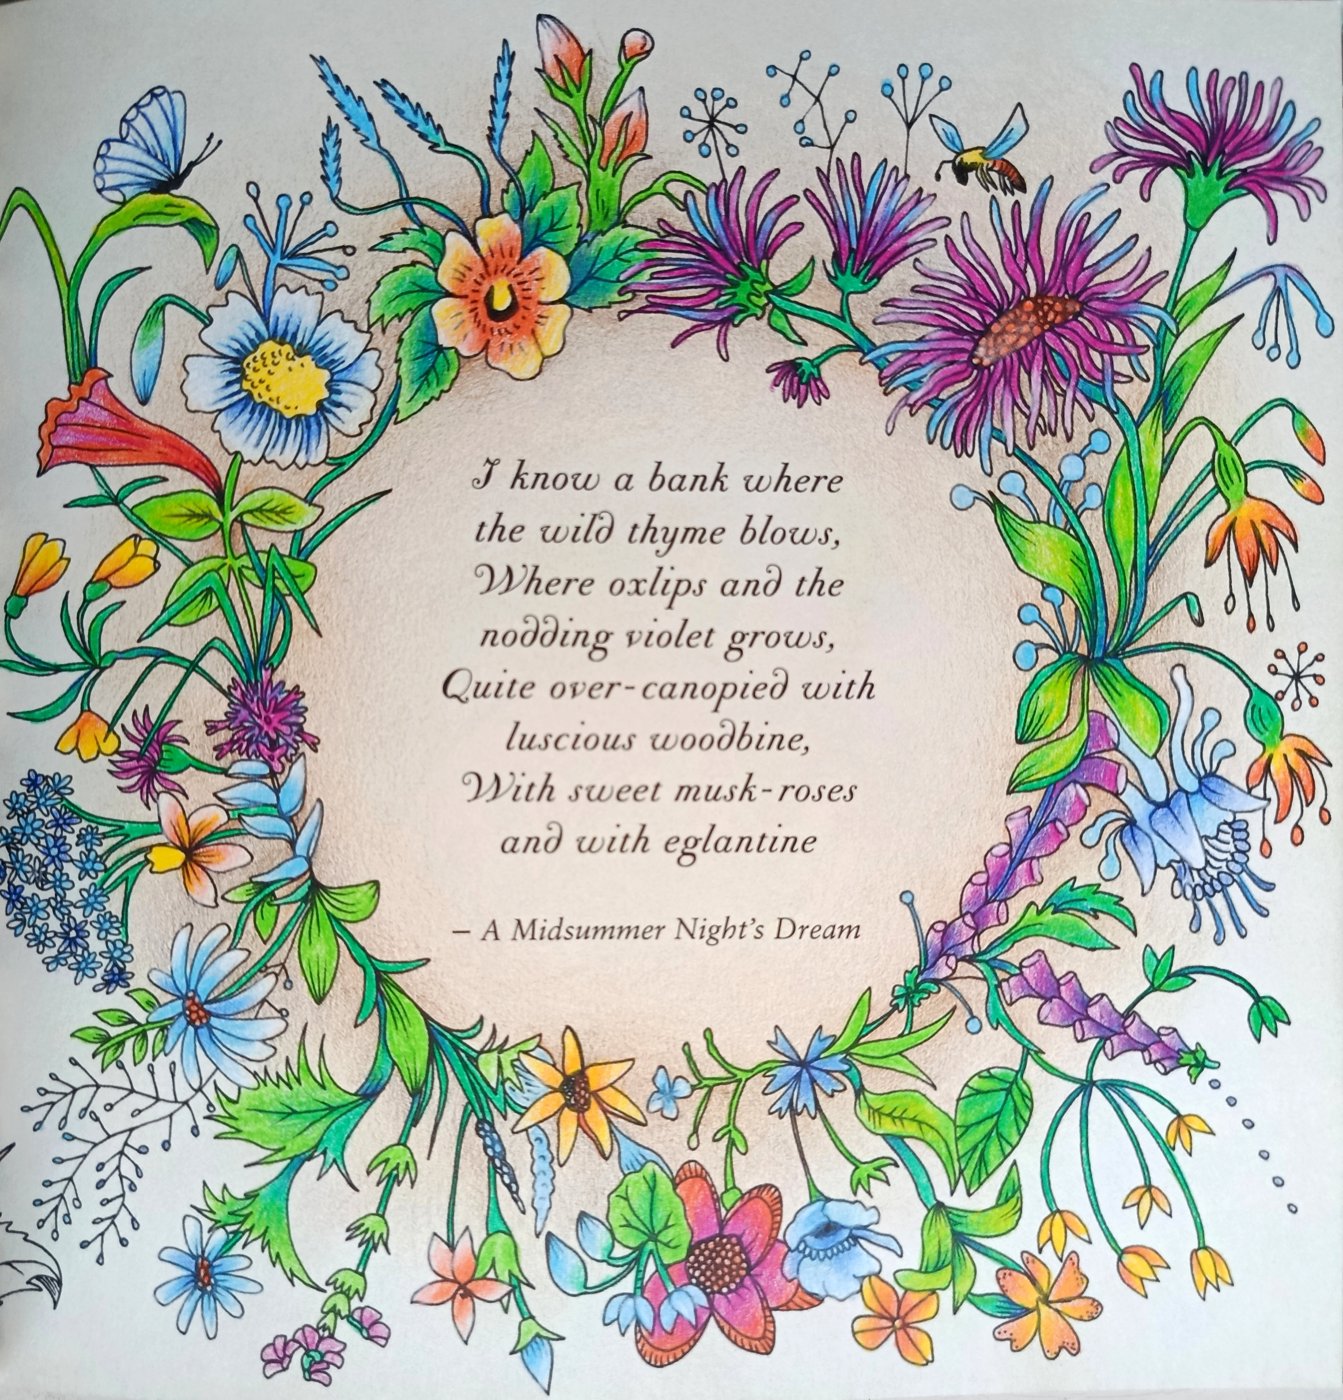 I know a bank where
the wild thyme blows,
Where oxlips and the
nodding violet grows,
Quite over-canopied with
luscious woodbine,
With sweet musk-roses
and with eglantine
– A Midsummer Night's Dream